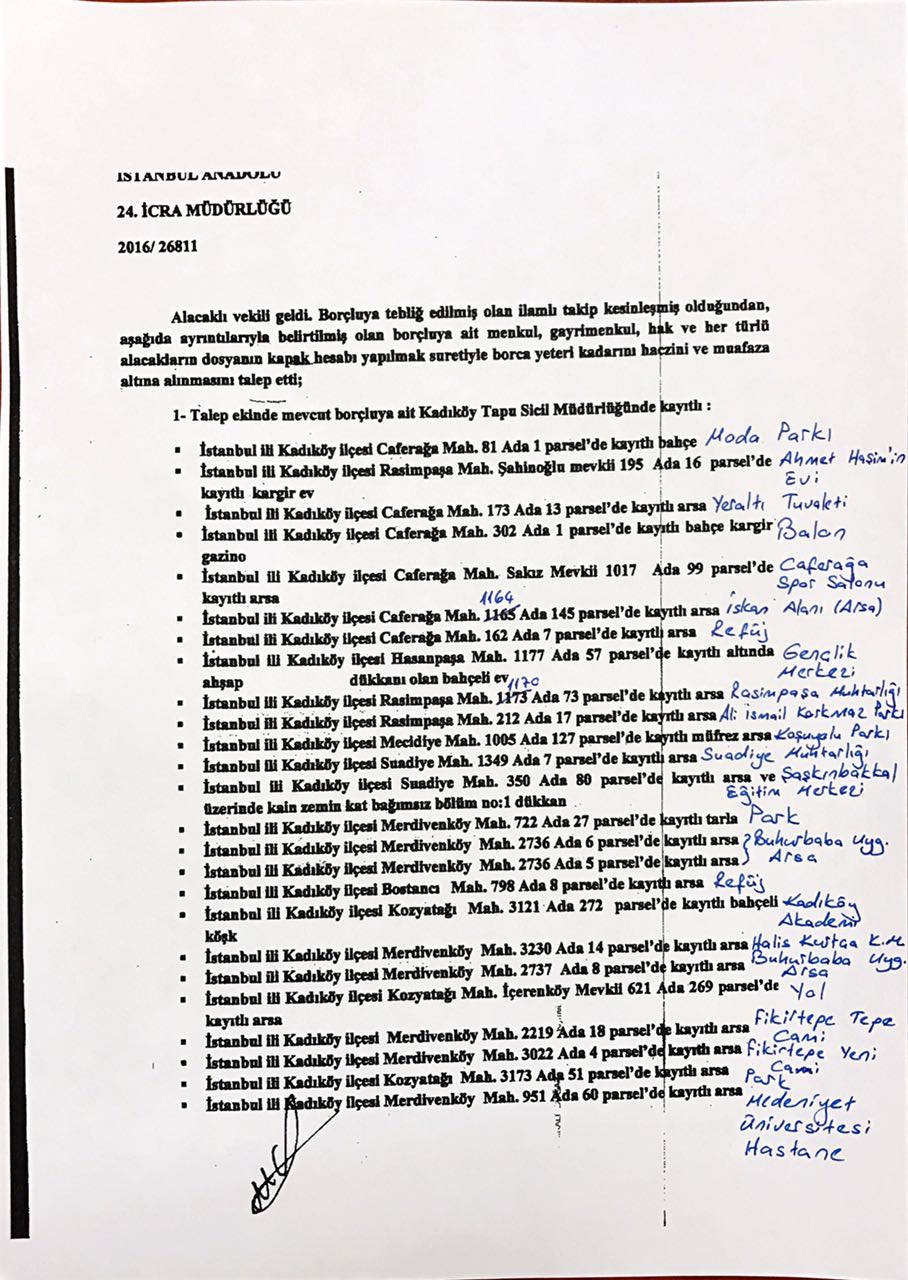 İSTANBUL ANADOLU
24. İCRA MÜDÜRLÜĞÜ
2016/ 26811
Alacaklı vekili geldi. Borçluya tebliğ edilmiş olan ilamlı takip kesinleşmiş olduğundan,
aşağıda ayrıntılarıyla belirtilmiş olan borçluya ait menkul, gayrimenkul, hak ve her türlü
alacakların dosyanın kapak hesabı yapılmak suretiyle borca yeteri kadarını haczini ve muafaza
altına alınmasını talep etti;
1- Talep ekinde mevcut borçluya ait Kadıköy Tapu Sicil Müdürlüğünde kayıtlı :
▪ İstanbul ili Kadıköy ilçesi Caferağa Mah. 81 Ada 1 parsel'de kayıtlı bahçe Moda Parkı
▪ İstanbul ili Kadıköy ilçesi Rasimpaşa Mah. Şahinoğlu mevkii 195 Ada 16 parsel'de Ahmet Haşim'in
kayıtlı kargir ev Evi
▪ İstanbul ili Kadıköy ilçesi Caferağa Mah. 173 Ada 13 parsel'de kayıtlı arsa Yeraltı Tuvaleti
▪ İstanbul ili Kadıköy ilçesi Caferağa Mah. 302 Ada 1 parsel'de kayıtlı bahçe kargir Balon
gazino
▪ İstanbul ili Kadıköy ilçesi Caferağa Mah. Sakız Mevkii 1017 Ada 99 parsel'de Caferağa
kayıtlı arsa Spor Salonu
1164
▪ İstanbul ili Kadıköy ilçesi Caferağa Mah. 1165 Ada 145 parsel'de kayıtlı arsa iskan Alanı (Arsa)
▪ İstanbul ili Kadıköy ilçesi Caferağa Mah. 162 Ada 7 parsel'de kayıtlı arsa Refüj
▪ İstanbul ili Kadıköy ilçesi Hasanpaşa Mah. 1177 Ada 57 parsel'de kayıtlı altında Gençlik
ahşap dükkanı olan bahçeli ev Merkezi
1170
▪ İstanbul ili Kadıköy ilçesi Rasimpaşa Mah. 1173 Ada 73 parsel'de kayıtlı arsa Rasimpaşa Muhtarlığı
▪ İstanbul ili Kadıköy ilçesi Rasimpaşa Mah. 212 Ada 17 parsel'de kayıtlı arsa Ali ismail Korkmaz Parkı
▪ İstanbul ili Kadıköy ilçesi Mecidiye Mah. 1005 Ada 127 parsel'de kayıtlı müfrez arsa Koşuyolu Parkı
▪ İstanbul ili Kadıköy ilçesi Suadiye Mah. 1349 Ada 7 parsel'de kayıtlı arsa Suadiye Muhtarlığı
▪ İstanbul ili Kadıköy ilçesi Suadiye Mah. 350 Ada 80 parsel'de kayıtlı arsa ve Şaşkınbakkal
üzerinde kain zemin kat bağımsız bölüm no:1 dükkan Eğitim Merkezi
▪ İstanbul ili Kadıköy ilçesi Merdivenköy Mah. 722 Ada 27 parsel'de kayıtlı tarla Park
▪ İstanbul ili Kadıköy ilçesi Merdivenköy Mah. 2736 Ada 6 parsel'de kayıtlı arsa } Buhurbaba Uyg.
▪ İstanbul ili Kadıköy ilçesi Merdivenköy Mah. 2736 Ada 5 parsel'de kayıtlı arsa } Arsa
▪ İstanbul ili Kadıköy ilçesi Bostancı Mah. 798 Ada 8 parsel'de kayıtlı arsa Refüj
▪ İstanbul ili Kadıköy ilçesi Kozyatağı Mah. 3121 Ada 272 parsel'de kayıtlı bahçeli Kadıköy
köşk Akademi
▪ İstanbul ili Kadıköy ilçesi Merdivenköy Mah. 3230 Ada 14 parsel'de kayıtlı arsa Halis Kurtça K.M.
▪ İstanbul ili Kadıköy ilçesi Merdivenköy Mah. 2737 Ada 8 parsel'de kayıtlı arsa Buhurbaba Uyg.
Arsa
▪ İstanbul ili Kadıköy ilçesi Kozyatağı Mah. İçerenköy Mevkii 621 Ada 269 parsel'de Yol
kayıtlı arsa
▪ İstanbul ili Kadıköy ilçesi Merdivenköy Mah. 2219 Ada 18 parsel'de kayıtlı arsa Fikirtepe Tepe
Cami
▪ İstanbul ili Kadıköy ilçesi Merdivenköy Mah. 3022 Ada 4 parsel'de kayıtlı arsa Fikirtepe Yeni
Cami
▪ İstanbul ili Kadıköy ilçesi Kozyatağı Mah. 3173 Ada 51 parsel'de kayıtlı arsa Park
▪ İstanbul ili Kadıköy ilçesi Merdivenköy Mah. 951 Ada 60 parsel'de kayıtlı arsa Medeniyet
Üniversitesi
Hastane